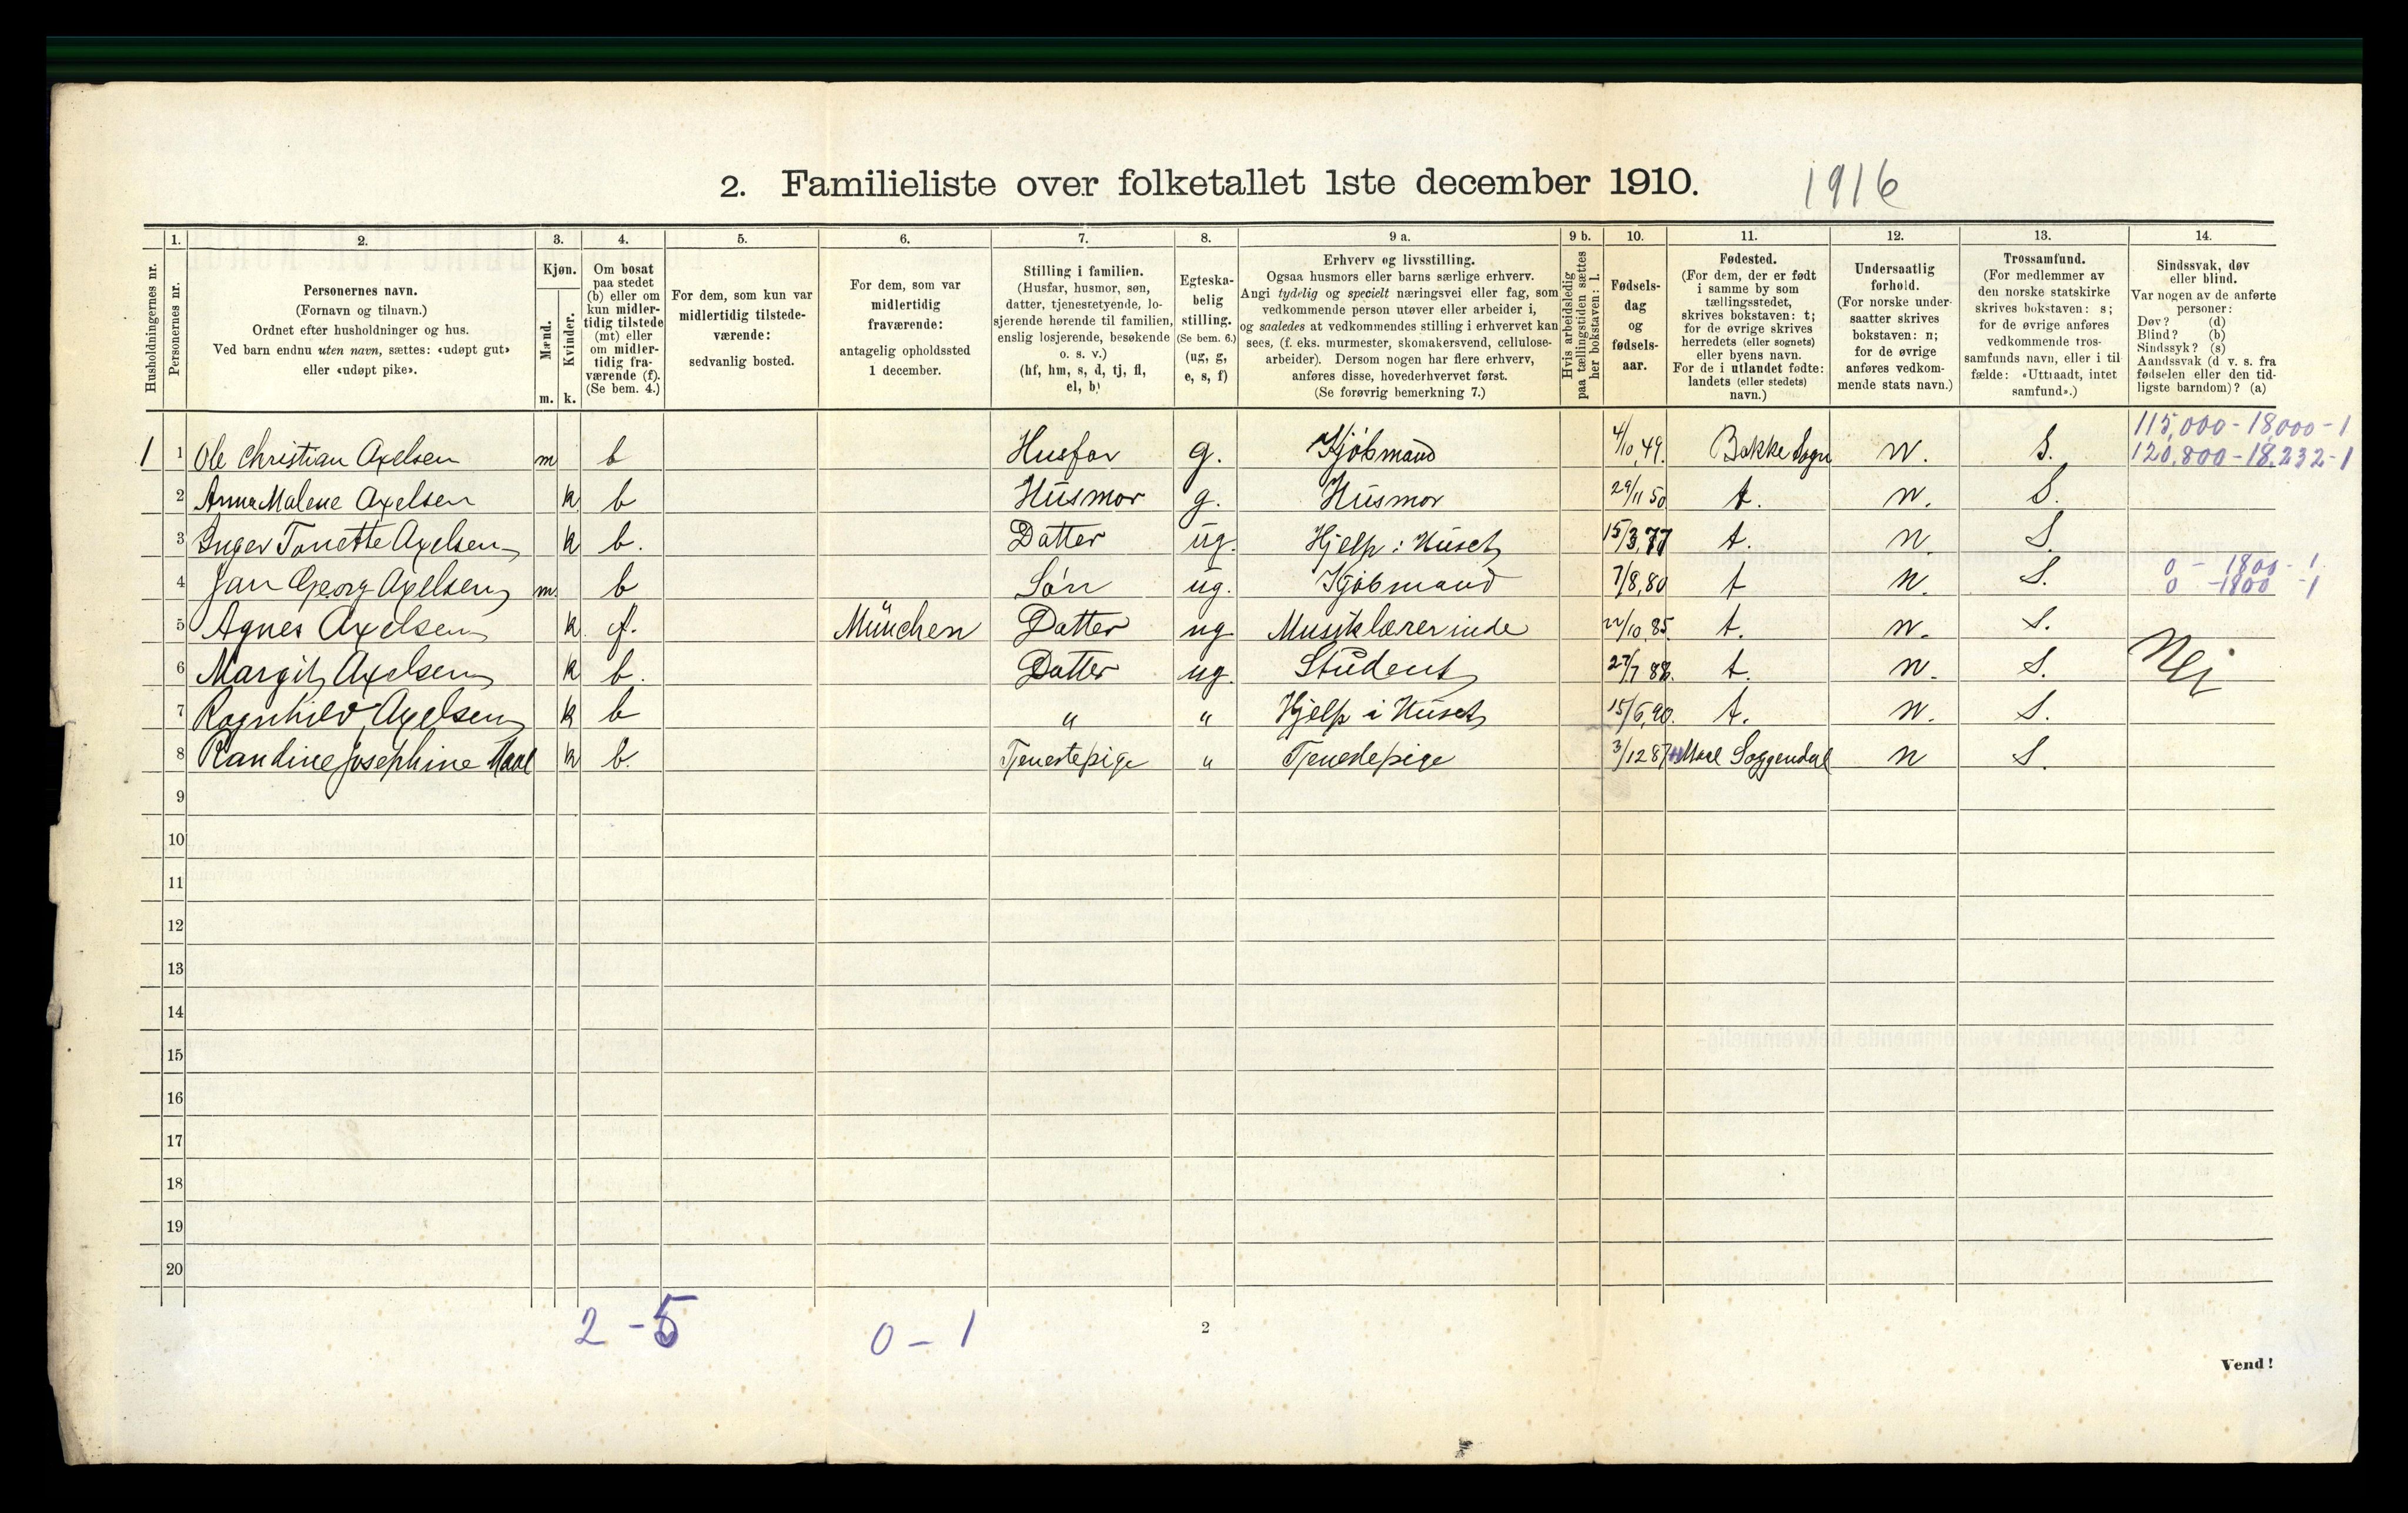 2. Familieliste over folketallet 1ste december 1910. 1916
1. 2. 3. 4. 5. 6. 7. 8. 9 a. 9 b. 10. 11. 12. 13. 14.
Husholdningernes nr.
Personernes nr.
Personernes navn.
(Fornavn og tilnavn.)
Ordnet efter husholdninger og hus.
Ved barn endnu uten navn, sættes: «udøpt gut»
eller «udøpt pike».
Kjøn.
Mænd.
Kvinder.
m. k.
Om bosat
paa stedet
(b) eller om
kun midler-
tidig tilstede
(mt) eller
om midler-
tidig fra-
værende (f).
(Se bem. 4.)
For dem, som kun var
midlertidig tilstede-
værende:
sedvanlig bosted.
For dem, som var
midlertidig
fraværende:
antagelig opholdssted
1 december.
Stilling i familien.
(Husfar, husmor, søn,
datter, tjenestetyende, lo-
sjerende hørende til familien,
enslig losjerende, besøkende
o. s. v.)
(hf, hm, s, d, tj, fl,
el, b)
Egteska-
belig
stilling.
(Se bem. 6.)
(ug, g,
e, s, f)
Erhverv og livsstilling.
Ogsaa husmors eller barns særlige erhverv.
Angi tydelig og specielt næringsvei eller fag, som
vedkommende person utøver eller arbeider i,
og saaledes at vedkommendes stilling i erhvervet kan
sees, (f. eks. murmester, skomakersvend, cellulose-
arbeider). Dersom nogen har flere erhverv,
anføres disse, hovederhvervet først.
(Se forøvrig bemerkning 7.)
Hvis arbeidsledig
paa tællingstiden sættes
her bokstaven: l.
Fødsels-
dag
og
fødsels-
aar.
Fødested.
(For dem, der er født
i samme by som
tællingsstedet,
skrives bokstaven: t;
for de øvrige skrives
herredets (eller sognets)
eller byens navn.
For de i utlandet fødte:
landets (eller stedets)
navn.)
Undersaatlig
forhold.
(For norske under-
saatter skrives
bokstaven: n;
for de øvrige
anføres vedkom-
mende stats navn.)
Trossamfund.
(For medlemmer av
den norske statskirke
skrives bokstaven: s;
for de øvrige anføres
vedkommende tros-
samfunds navn, eller i til-
fælde: «Uttraadt, intet
samfund».)
Sindssvak, døv
eller blind.
Var nogen av de anførte
personer:
Døv? (d)
Blind? (b)
Sindssyk? (s)
Aandssvak (d v. s. fra
fødselen eller den tid-
ligste barndom)? (a)
115,000 - 18,000 - 1
1 1 Ole Christian Axelsen m b Husfar g. Kjøbmand 4/10,49. Bakke Sogn n. S. 120,800 - 18,232 - 1
2 Anna Malene Axelsen k b Husmor g. Husmor 29/11 50 t. n. S.
3 Inger Tonette Axelsen k b. Datter ug. Hjelp i Huset 15/3,77 t. n. S.
0 - 1800 - 1
4 Jan Georg Axelsen m. b Søn ug. Kjøbmand 7/8,80 t n. S. 0 - 1800 - 1
5 Agnes Axelsen k. f. München Datter ug Musiklærerinde 22/10,85. t. n. S.
6 Margit Axelsen k b. Datter ug. Student 27/7 88. t. n. S. Nei
7 Ragnhild Axelsen k b " " Hjelp i Huset 15/6,90. t. n. S.
8 Randine Josephine Maal k b. Tjenestepige " Tjenestepige 3/12 87 Maal Soggendal n S.
9
10
11
12
13
14
15
16
17
18
19
20
2 - 5 0 - 1
2
Vend!